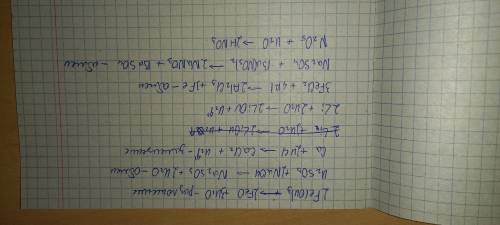 2Fe(OH)3 → 2FeO + H2O - разложение
H2SO3 + 2NaOH → Na2SO3 + 2H2O - обмен
Ca + 2HCl → CaCl2 + H2↑ - замещение
2Li + 2H2O → 2LiOH + H2↑
3FeCl2 + 2Al → 2AlCl3 + 3Fe - обмен
Na2SO4 + Ba(NO3)2 → 2NaNO3 + BaSO4 - обмен
N2O5 + H2O → 2HNO3